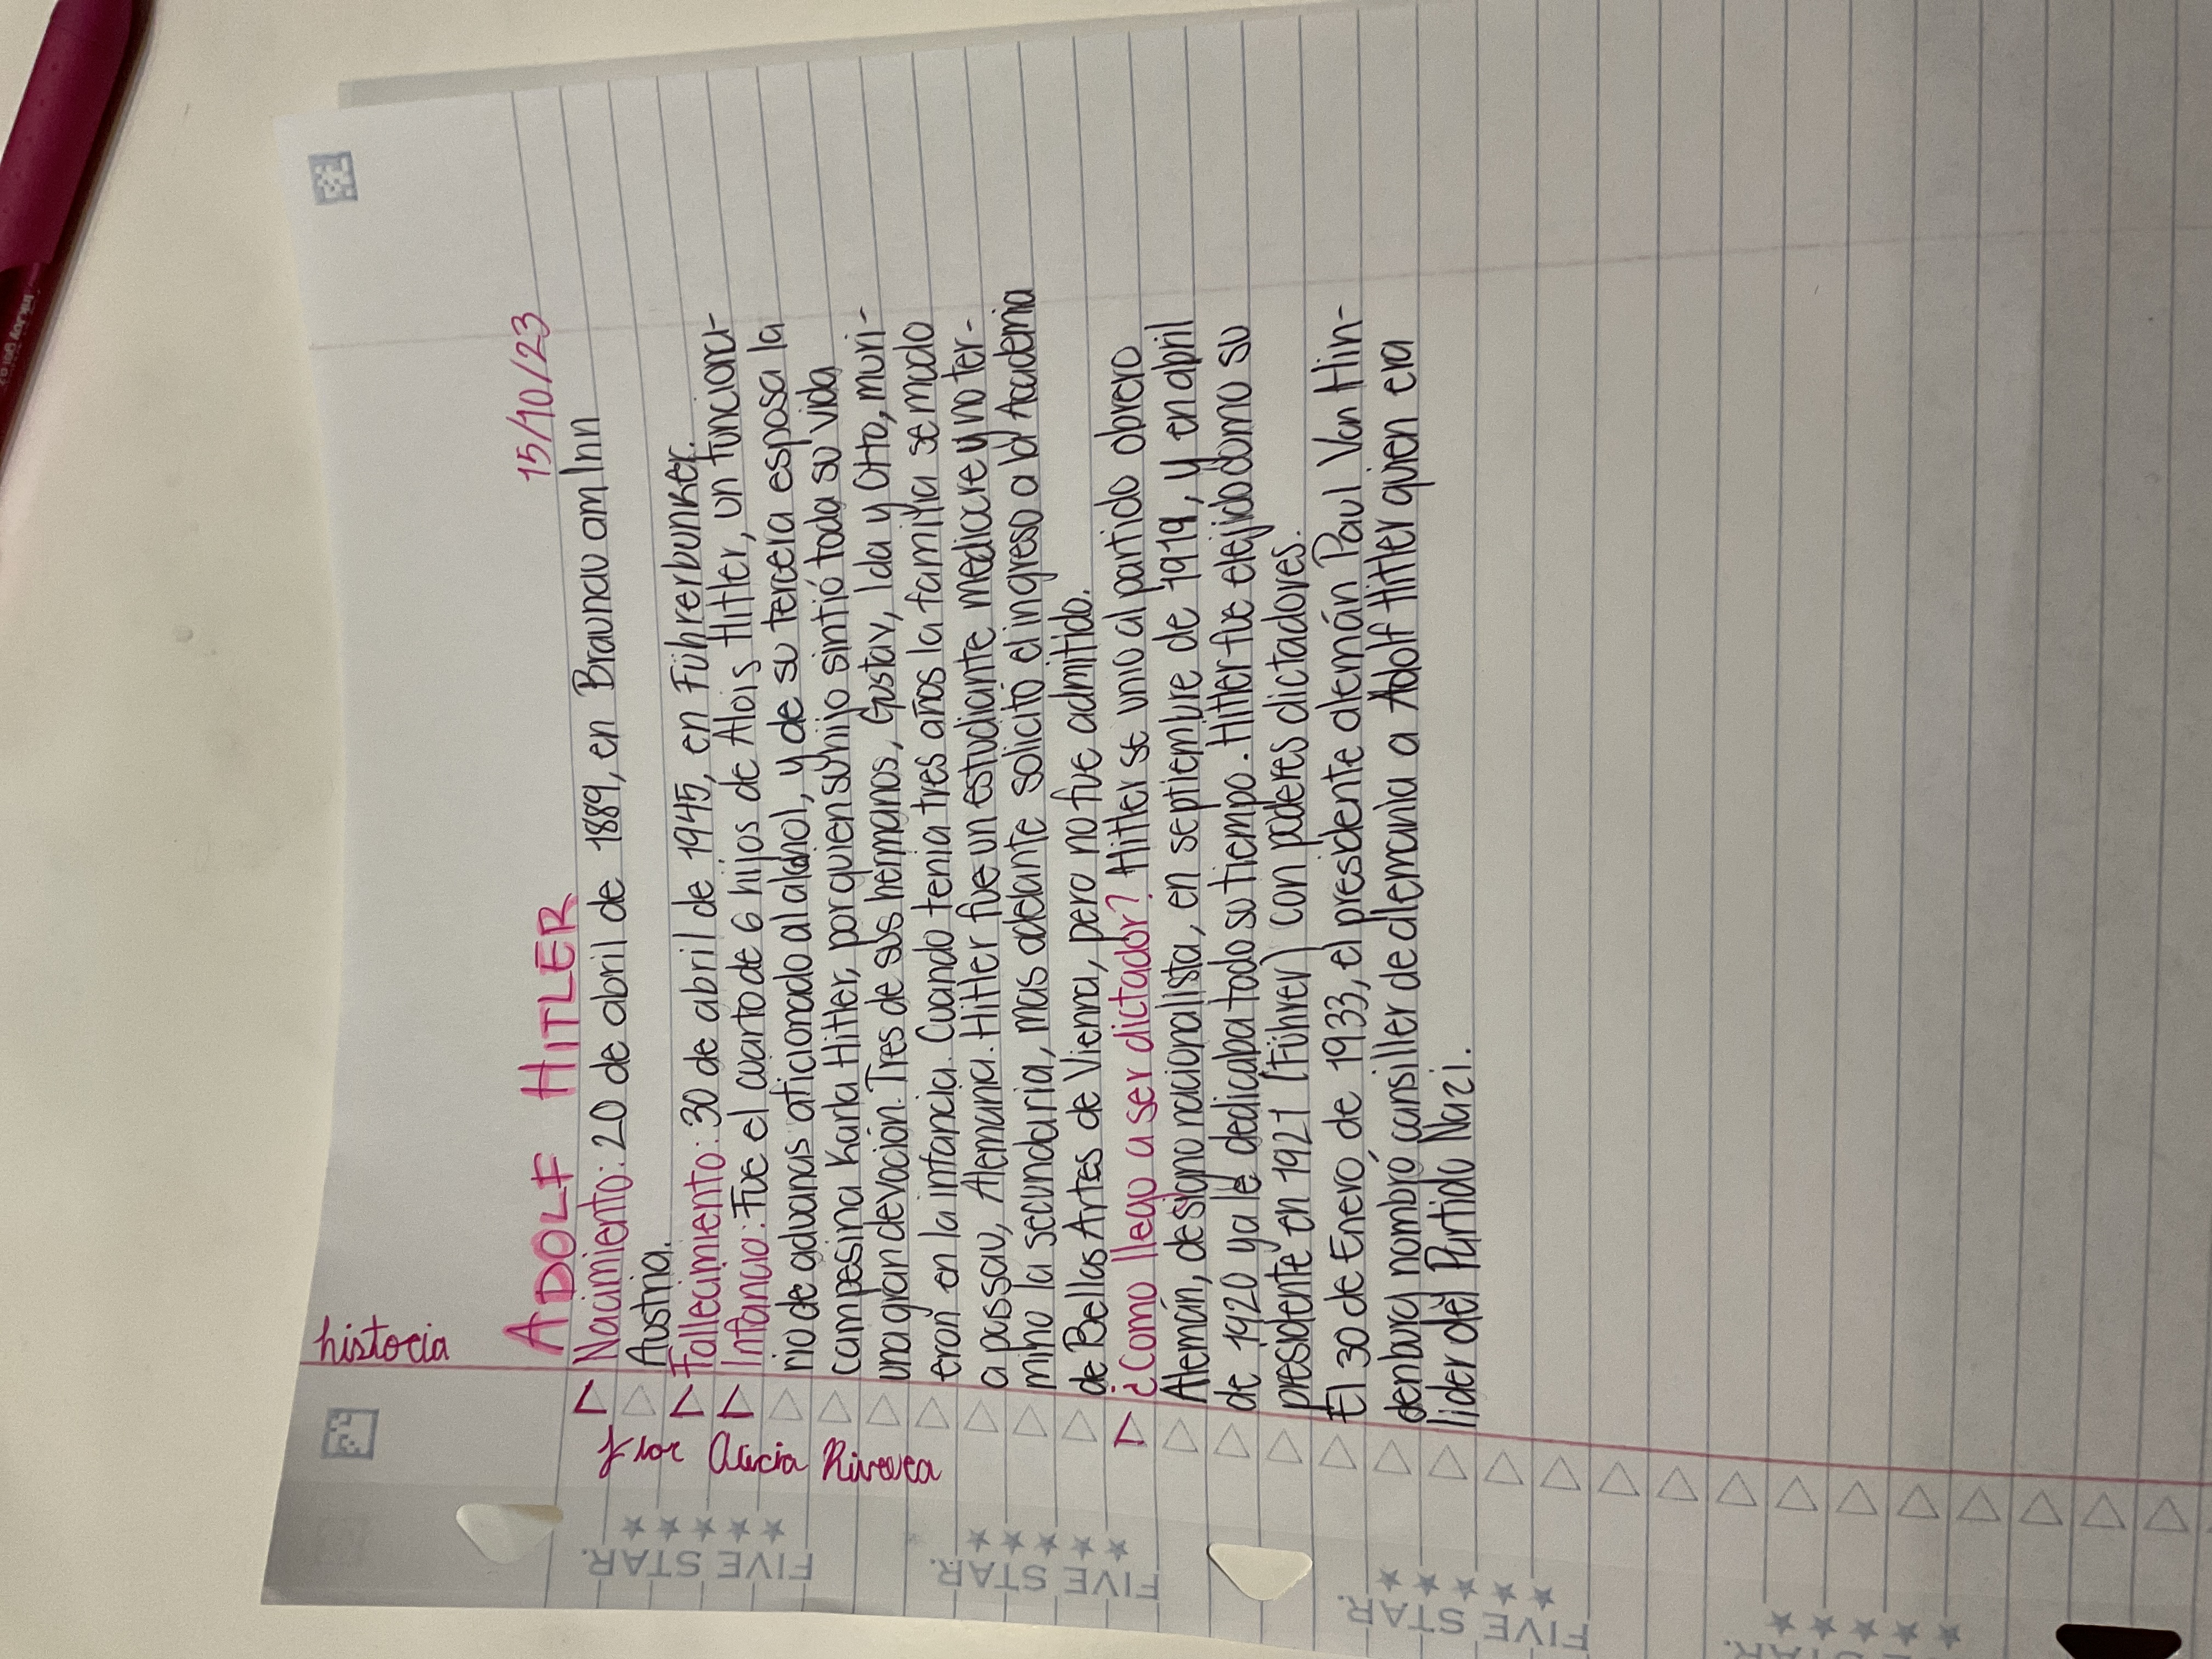 historia
15/10/23
ADOLF HITLER
Nacimiento: 20 de abril de 1889, en Braunau am Inn
Austria.
Fallecimiento: 30 de abril de 1945, en Führerbunker.
Infancia: Fue el cuarto de 6 hijos de Alois Hitler, un funciona-
rio de aduanas aficionado al alcohol, y de su tercera esposa la
campesina Karla Hitler, por quien su hijo sintió toda su vida
una gran devoción. Tres de sus hermanos, Gustav, Ida y Otto, muri-
eron en la infancia. Cuando tenia tres años la familia se mudo
a passau, Alemania. Hitler fue un estudiante mediocre y no ter-
mino la secundaria, mas adelante solicito el ingreso a la Academia
de Bellas Artes de Vienna, pero no fue admitido.
¿Como llego a ser dictador? Hitler se unio al partido obrero
Alemán, de signo nacionalista, en septiembre de 1919, y en april
de 1920 ya le dedicaba todo su tiempo. Hitler fue elejido como su
presidente en 1921 (Führer) con poderes dictadores.
El 30 de Enero de 1933, el presidente alemán Paul Von Hin-
denburg nombró cansiller de alemania a Adolf Hitler quien era
lider del Partido Nazi.
Flor Alicia Rivera
FIVE STAR.
FIVE STAR.
FIVE STAR.
STAR.